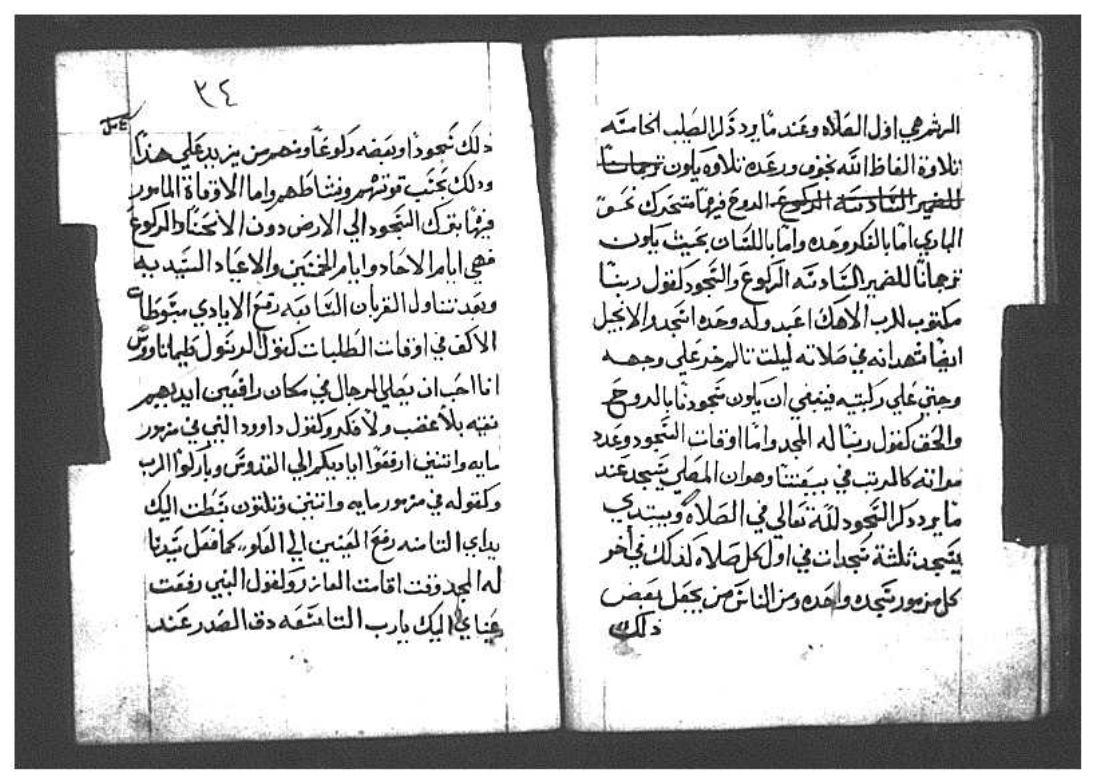 الرشم هي اول الصلاه وعند ما يرد ذكر الصليب الخامسه
تلاوة الفاظ الله بخوف ورعده تلاوه يكون ترجمانا
للضمير السادسه الركوع الدوع فيها متحرك نحو
الباري اما بالفكر وحده واما باللسان بحيث يكون
ترجمانا للضمير السادسه الركوع والسجود كقول ربنا
مكتوب للرب الاهك اعبد وله وحده اسجد والانجيل
ايضا شهد انه في صلاته ليلت تالم خر على وجهه
وجتي علي ركبتيه فينبغي ان يكون سجودنا بالروح
والحق كقول ربنا له المجد واما اوقات السجود وعدد
مراته كالمرتب في بيعتنا وهو ان المصلي يسجد عند
ما يرد ذكر السجود لله تعالي في الصلاه ويبتدي
يسجد ثلثة سجدات في اول كل صلاه لذلك في اخر
كل مزمور سجده واحده ومن الناس من يجعل بعض
ذلك
٣٤
ذلك سجودا وبعضه ركوعا ومنهم من يزيد علي هذا
وذلك بحسب قوتهم ونشاطهم واما الاوقاة المامور
فيها بترك السجود الي الارض دون الانحنا والركوع
فهي ايام الاحاد وايام الخمسين والاعياد السيديه
وبعد تناول القربان السابعه رفع الايادي مبسوطة
الاكف في اوقات الطلبات كقول الرسول طيماتاووس
انا احب ان يصلي الرجال في مكان رافعين ايديهم
نقيه بلا غضب ولا فكر وكقول داوود النبي في مزمور
مايه واتنين ارفعوا اياديكم الي القدوس وباركوا الرب
وكقوله في مزمور مايه واتنين وتلتون بسطت اليك
يداي التامنه رفع العينين الي العلو كما فعل سيدنا
له المجد وقت اقامت العازر ولقول النبي رفعت
عيناي اليك يا رب التاسعه دق الصدر عند